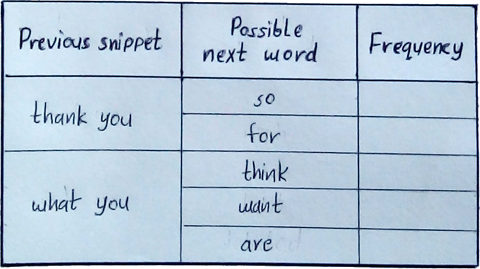 Previous snippet
Possible
next word
Frequency
thank you
so
for
what you
think
want
are